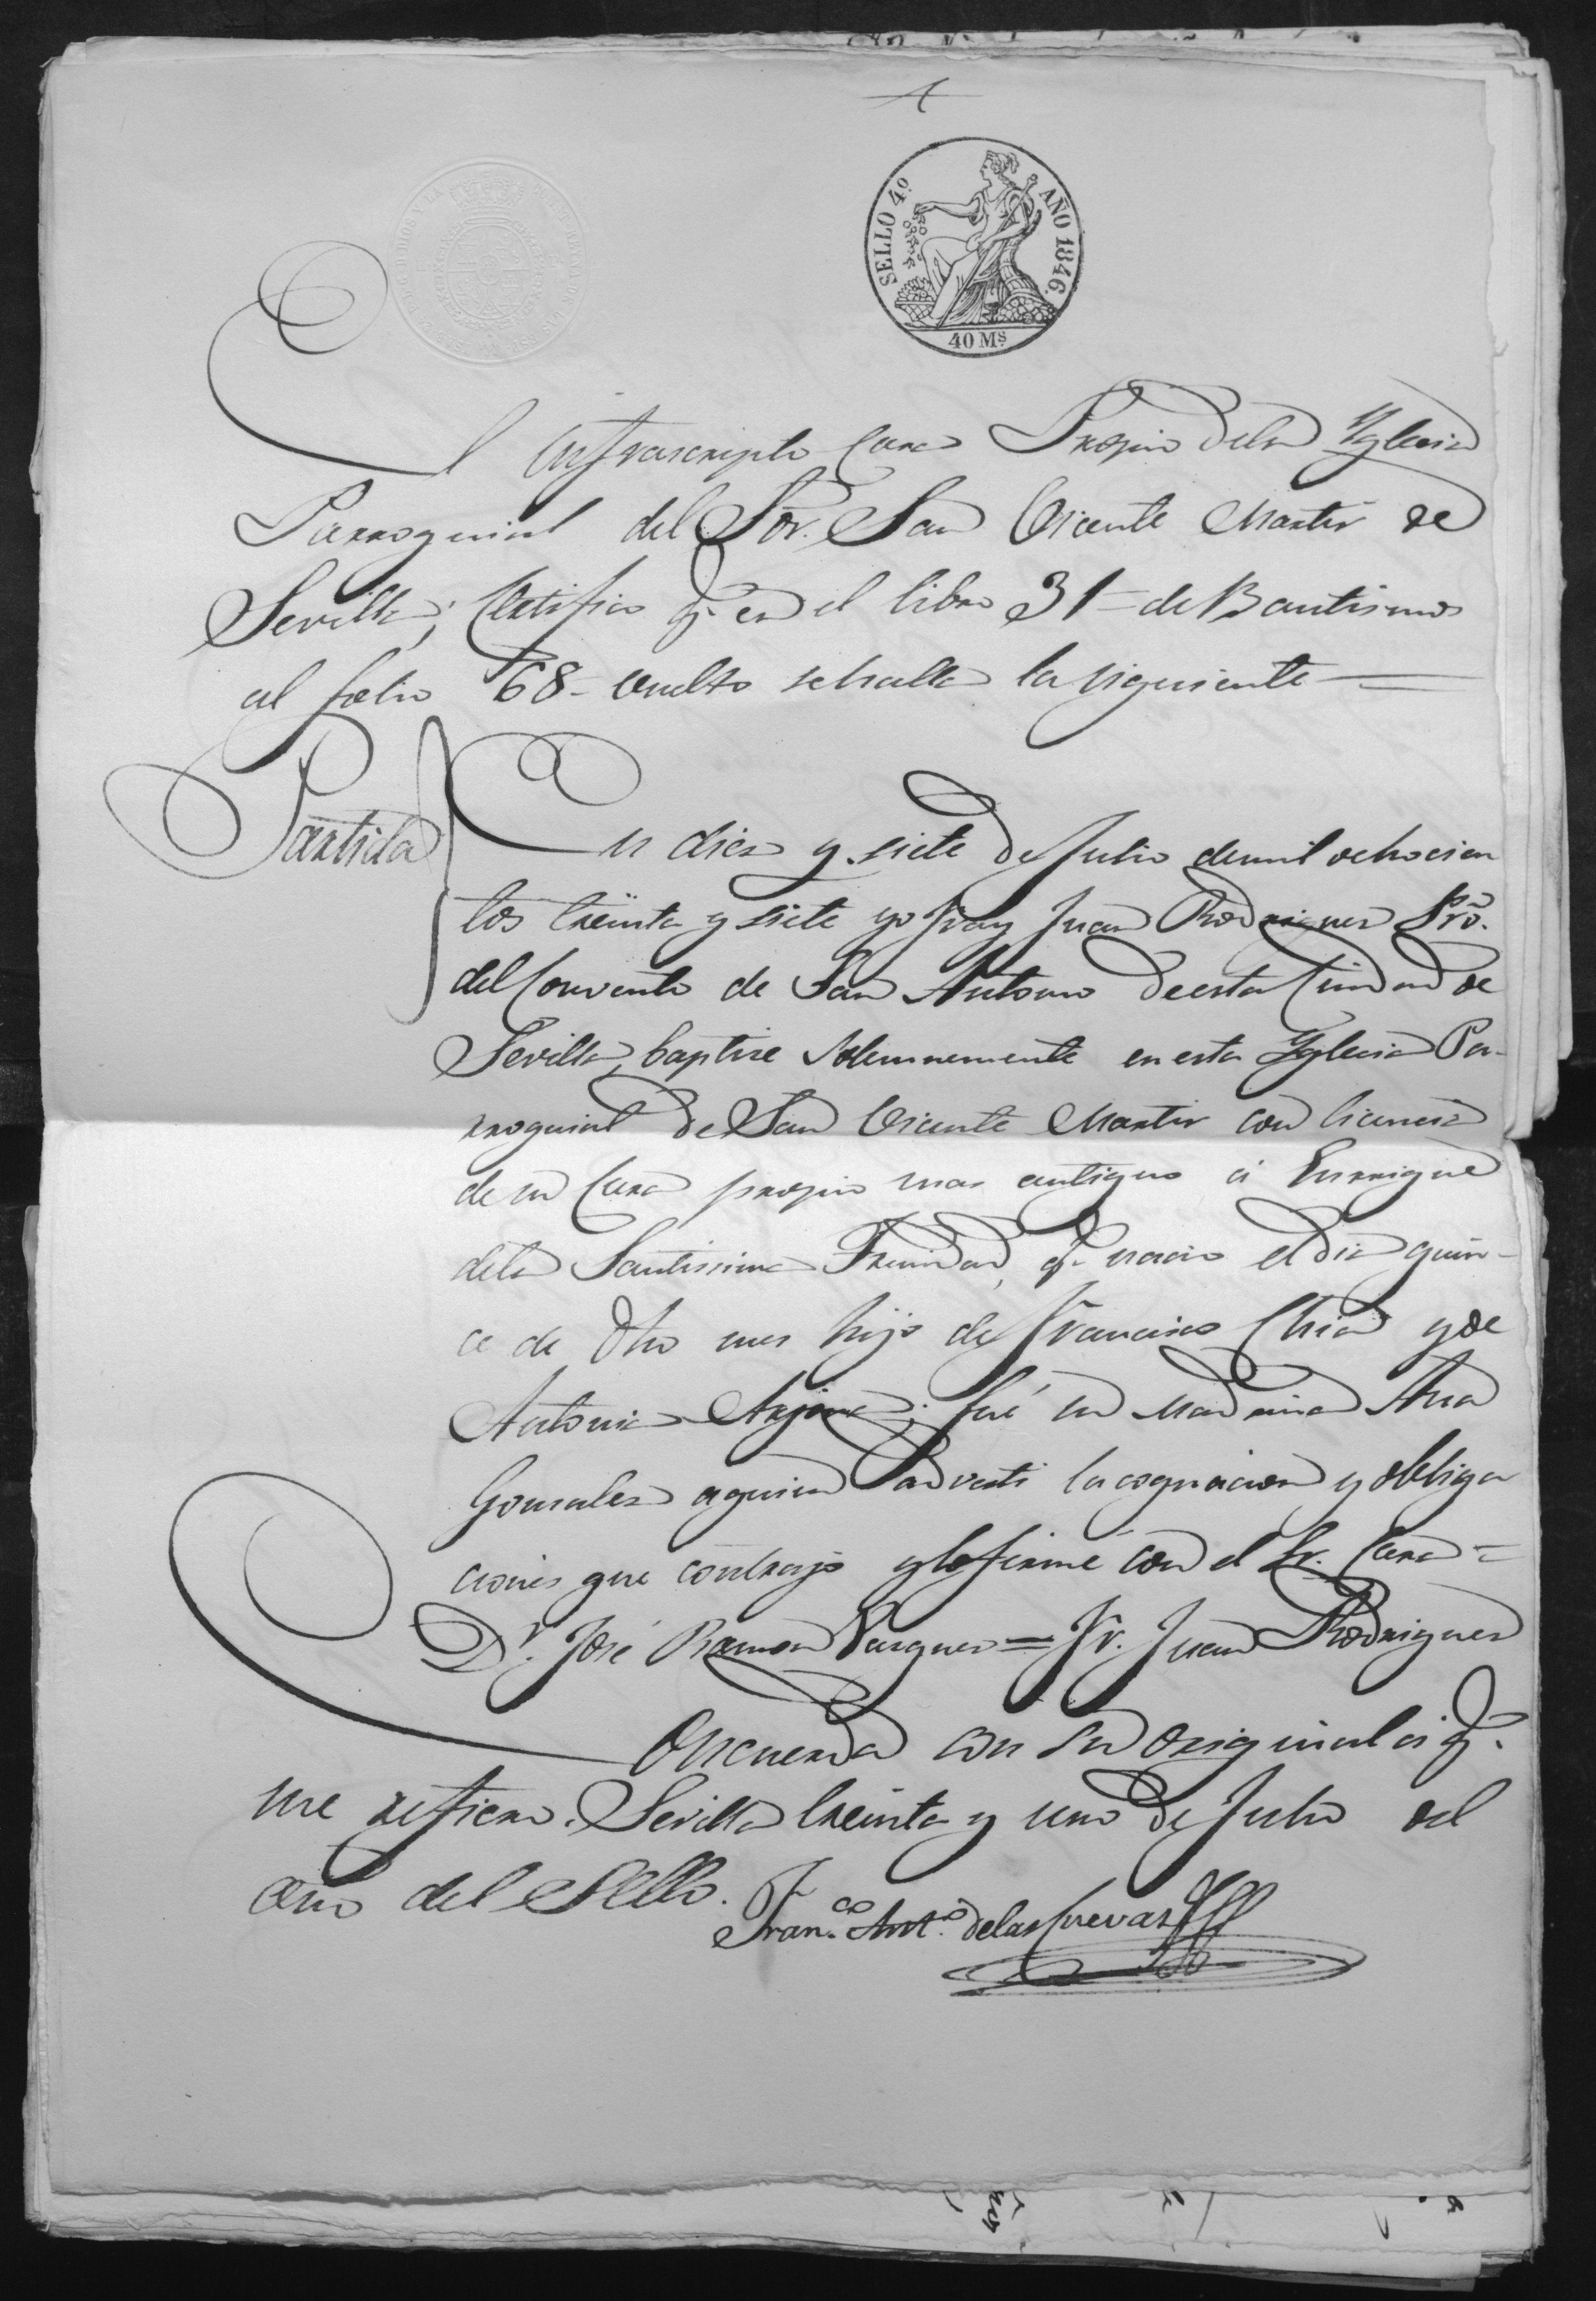 SELLO 4º AÑO 1846.
40 Ms
El Infrascripto Cura Propio dela Yglesia
Parroquial del Sor. San Vicente Martir de
Sevilla; Certifico q.e en el libro 31 - de Bautismos
al folio 68 - vuelto sehalla la siguiente
Partida
En diez y siete de Julio demil ochocien
tos treinta y siete yo Fray Juan Rodriguez Pro.
del Convento de San Antonio de esta Ciudad de
Sevilla, baptize solemnemente en esta Yglesia Pa-
rroquial de San Vicente Martir con licencia
de su Cura propio mas antiguo á Enrrique
dela Santissima Trinidad, q.e nacio el dia quin-
ce de dho mes hijo de Francisco Chia y de
Antonia Arjona; fué su Madrina Ana
Gonzalez aquien adverti la cognacion y obliga
ciones que contrajo y lo firmé con el Sr. Cura =
Dr. José Ramon Vazquez = Fr. Juan Rodriguez
Concuerda con su original á q.e
me refiero. Sevilla treinta y uno de Julio del
año del Sello.
Fran.co Ant.o delas Cuevas